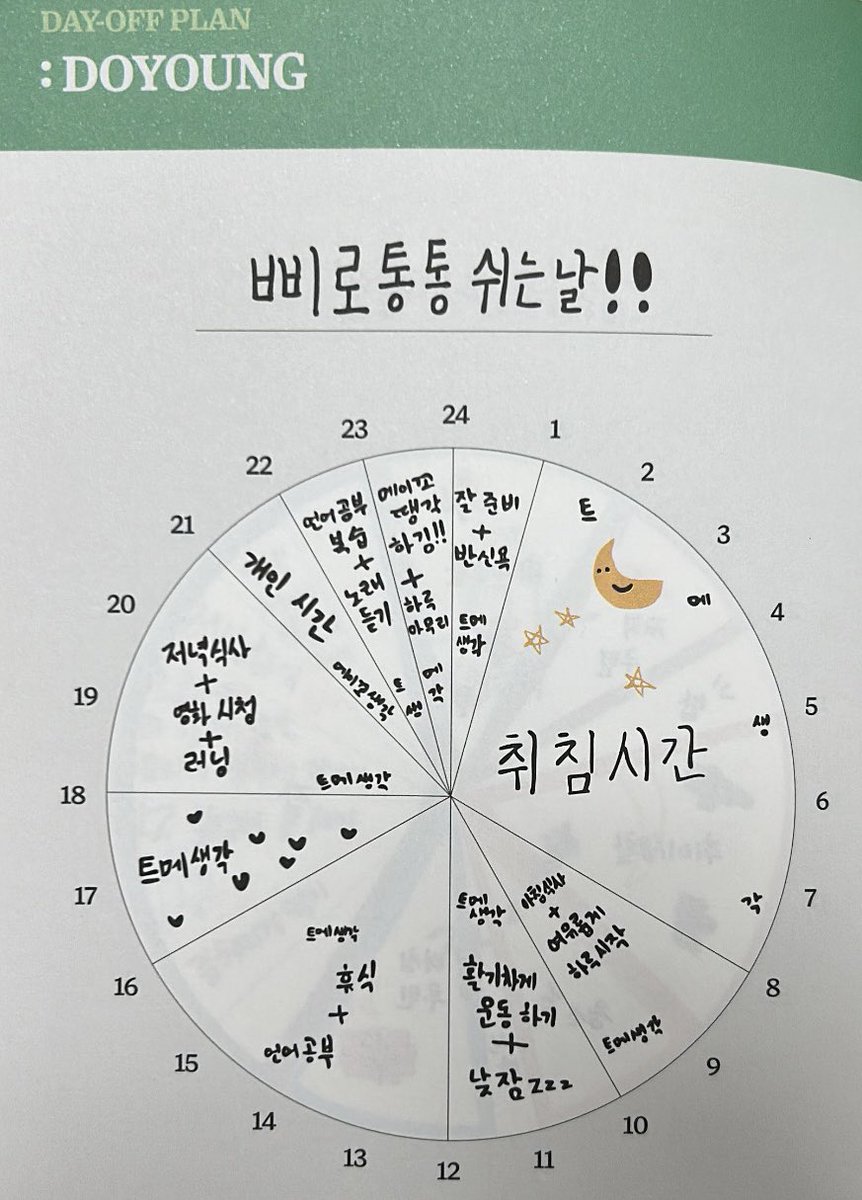 DAY-OFF PLAN
: DOYOUNG
삐로통통 쉬는날!!
24
1
2
3
4
5
6
7
8
9
10
11
12
13
14
15
16
17
18
19
20
21
22
23
잘 준비
+
반신욕
트메
생각
트
메
생
각
취침시간
아침식사
+
여유롭게
하루시작
트메생각
트메
생각
활기차게
운동 하기
+
낮잠 zzz
트메생각
휴식
+
언어공부
트메생각
저녁식사
+
영화 시청
+
러닝
트메생각
개인 시간
메이꼬생각
언어공부
복습
+
노래
듣기
트
생
메이꼬
땡각
하김!!
+
하루
마무리
메
각